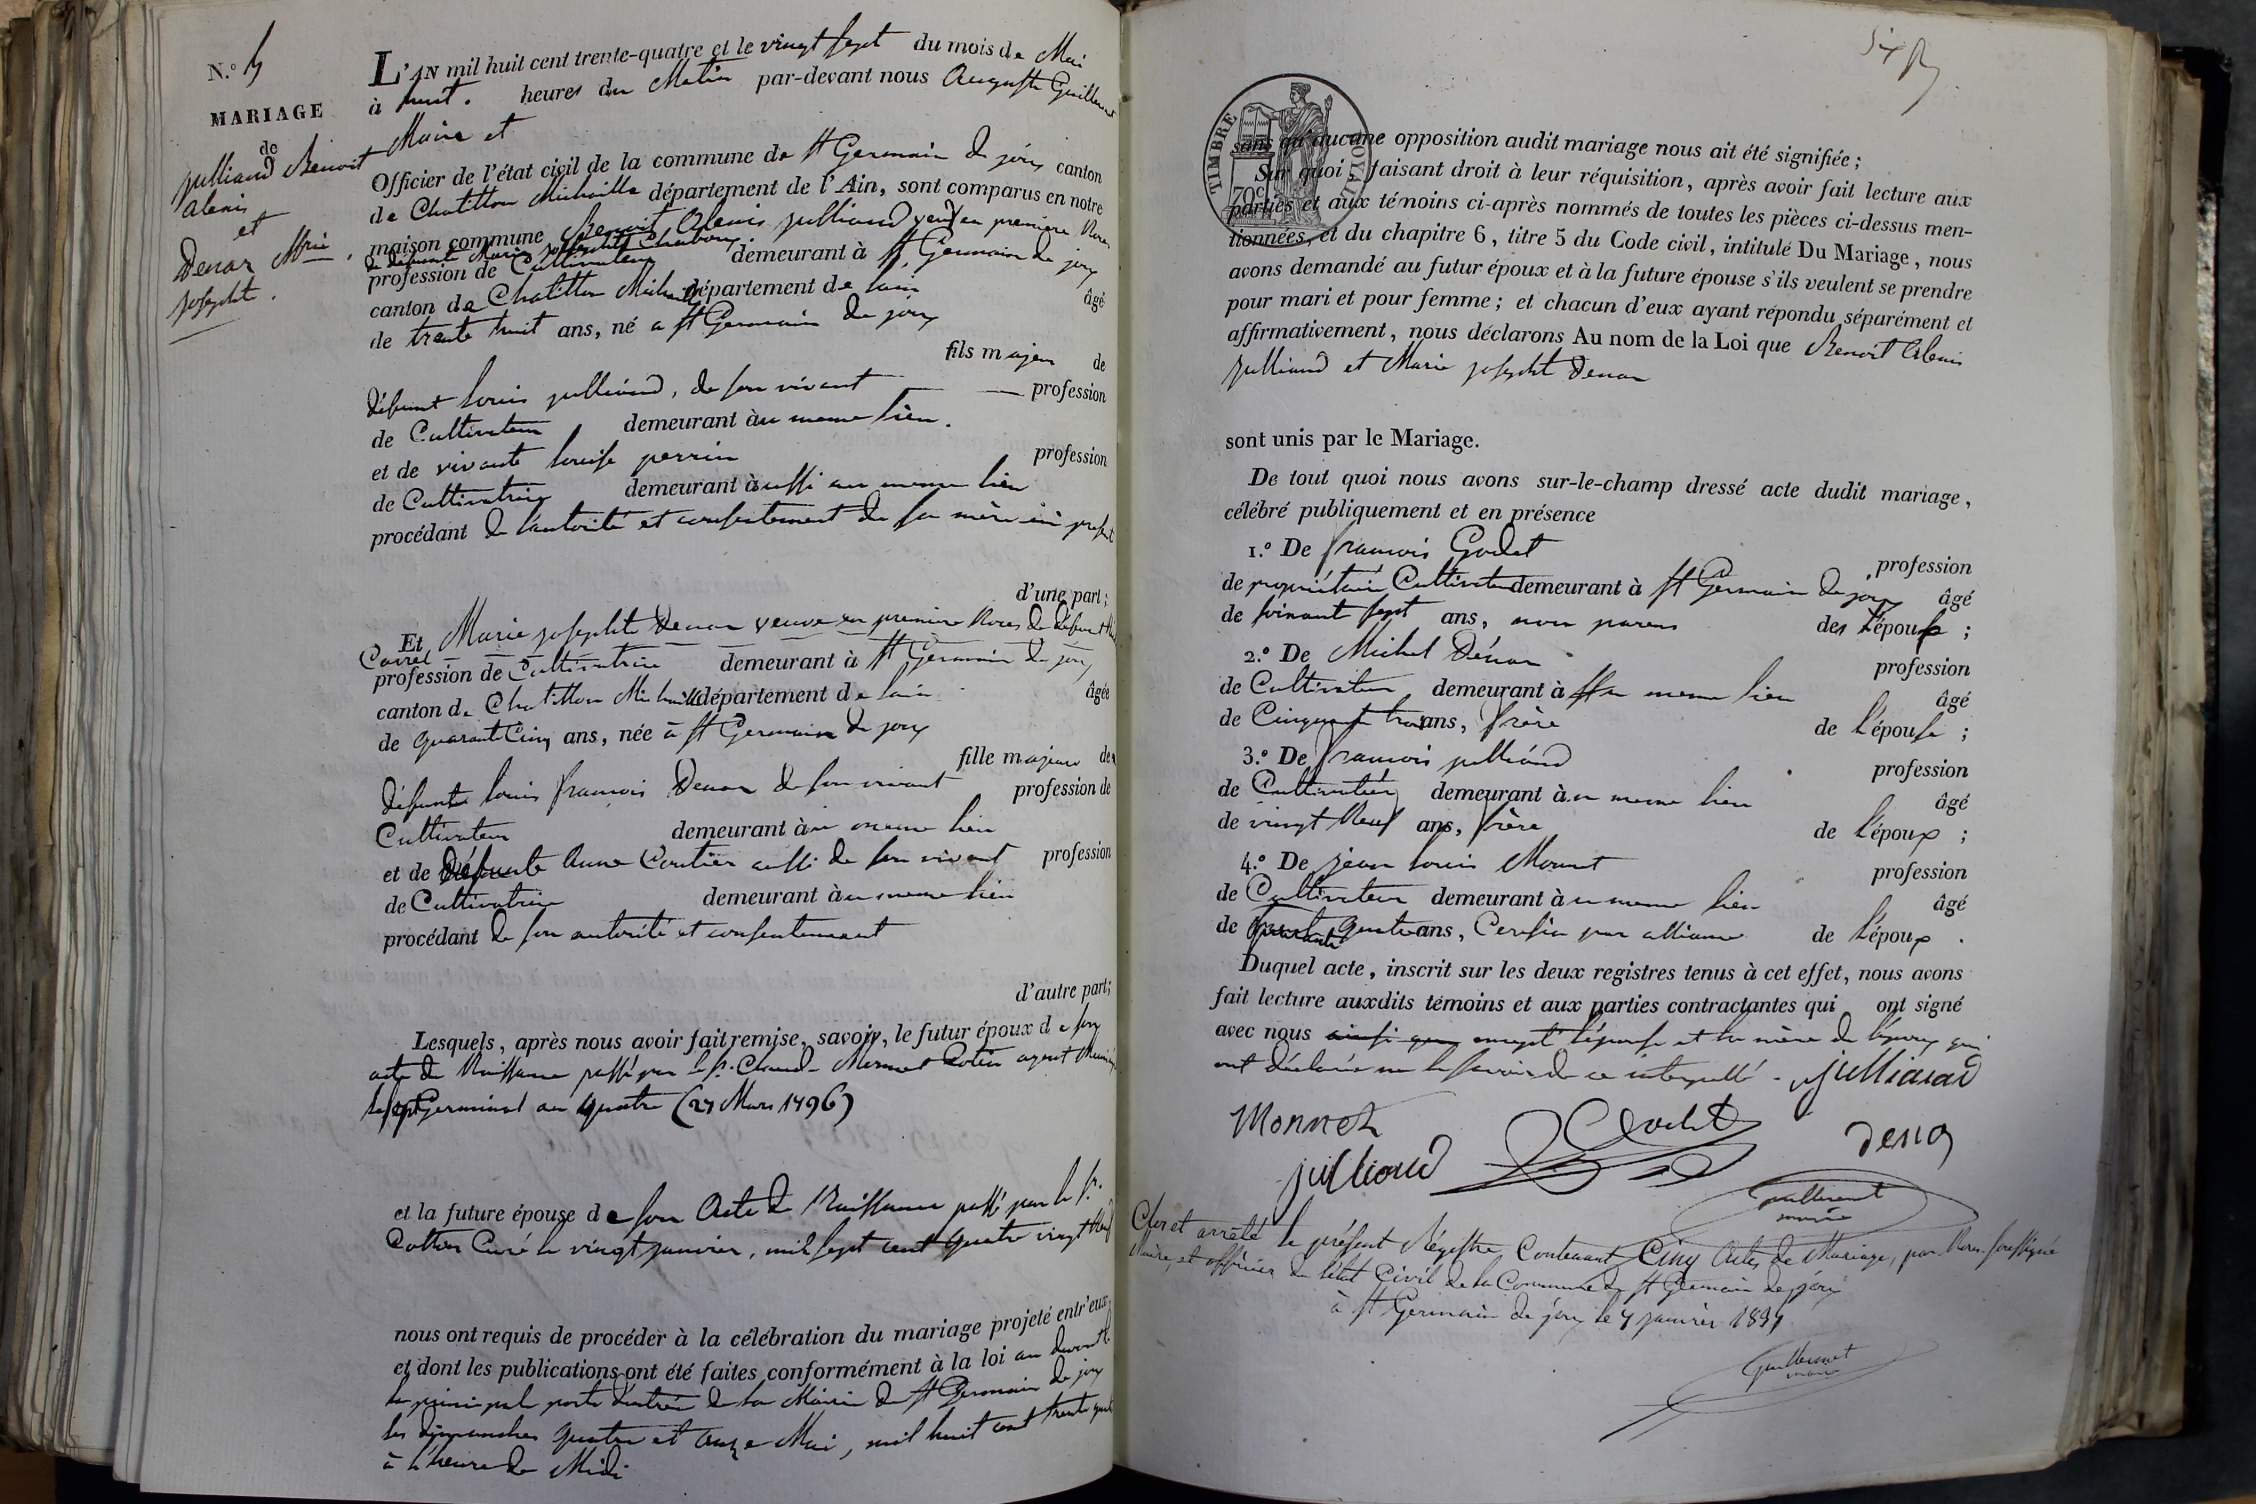 N.º 5
MARIAGE
de
julliand Benoit
alexis
et
Denar Mrie
josephte.
L'AN mil huit cent trente-quatre et le vingt sept du mois de Mai
à huit. heures du Matin par-devant nous Auguste Guillermet
Maire et
Officier de l'état civil de la commune de St Germain de joux canton
de Chatillon Michaille département de l'Ain, sont comparus en notre
maison commune Benoit Alexis julliand veuf en première Noces
de défunte Marie josephte
profession de Cultivateur demeurant à St Germain de joux
canton de Chatillon Michaille département de lain âgé
de trente huit ans, né a St Germain de joux
fils majeur de
défunt louis julliand, de son vivant profession
de Cultivateur demeurant à au meme lieu.
et de vivante louise perrin profession
de Cultivatrice demeurant à aussi au meme lieu
procédant de l'autorité et consentement de sa mère ici present
d'une part;
Et Marie josephte Denar veuve en première Noces de défunt
Carrel
profession de Cultivatrice demeurant à St Germain de joux
canton de Chatillon Michaille département de lain âgée
de quarante Cinq ans, née à St Germain de joux
fille majeure de
défunte louis françois Denar de son vivant profession de
Cultivateur demeurant à au meme lieu
et de Défunte Anne Coutier aussi de son vivant profession
de Cultivatrice demeurant à au meme lieu
procédant de son autorité et consentement
d'autre part;
Lesquels, après nous avoir fait remise, savoir, le futur époux de son
acte de Naissance passé par le Sr. Claude Mermet agent
le sept Germinal an quatre (27 Mars 1796)
et la future épouse de son Acte de Naissance passé par le Sr.
Curé le vingt janvier, mil sept cent quatre vingt Neuf
nous ont requis de procéder à la célébration du mariage projeté entr'eux,
et dont les publications ont été faites conformément à la loi au devant de
la principale porte d'entrée de la Mairie de St Germain de joux
les dimanches quatre et onze Mai, mil huit cent trente quatre
à l'heure de Midi
six
TIMBRE ROYAL
70c
sans qu'aucune opposition audit mariage nous ait été signifiée;
Sur quoi faisant droit à leur réquisition, après avoir fait lecture aux
parties et aux témoins ci-après nommés de toutes les pièces ci-dessus men-
tionnées, et du chapitre 6, titre 5 du Code civil, intitulé Du Mariage, nous
avons demandé au futur époux et à la future épouse s'ils veulent se prendre
pour mari et pour femme; et chacun d'eux ayant répondu séparément et
affirmativement, nous déclarons Au nom de la Loi que Benoit Alexis
julliand et Marie josephte Denar
sont unis par le Mariage.
De tout quoi nous avons sur-le-champ dressé acte dudit mariage,
célébré publiquement et en présence
1.º De françois Godet profession
de propriétaire Cultivateur demeurant à St Germain de joux âgé
de soixante sept ans, non parens des l'épouse;
2.º De Michel Dénar profession
de Cultivateur demeurant à au meme lieu âgé
de Cinquante trois ans, frère de l'épouse;
3.º De françois julliand profession
de Cultivateur demeurant à au meme lieu âgé
de vingt Neuf ans, frère de l'époux;
4.º De jean louis Monnet profession
de Cultivateur demeurant à au meme lieu âgé
de quarante quatre ans, Cousin par alliance de l'époux.
Duquel acte, inscrit sur les deux registres tenus à cet effet, nous avons
fait lecture auxdits témoins et aux parties contractantes qui ont signé
avec nous excepté l'épouse et la mère de l'époux qui
ont déclaré ne le savoir de ce interpellé. julliand
Monnet
julliand Godet Dena
guillermet
maire
Clos et arrêté le présent Régistre Contenant Cinq Actes de Mariage, par Nous soussigné
Maire, et officier de l'état Civil de la Commune de St Germain de joux
à St Germain de joux le janvier
guillermet
maire